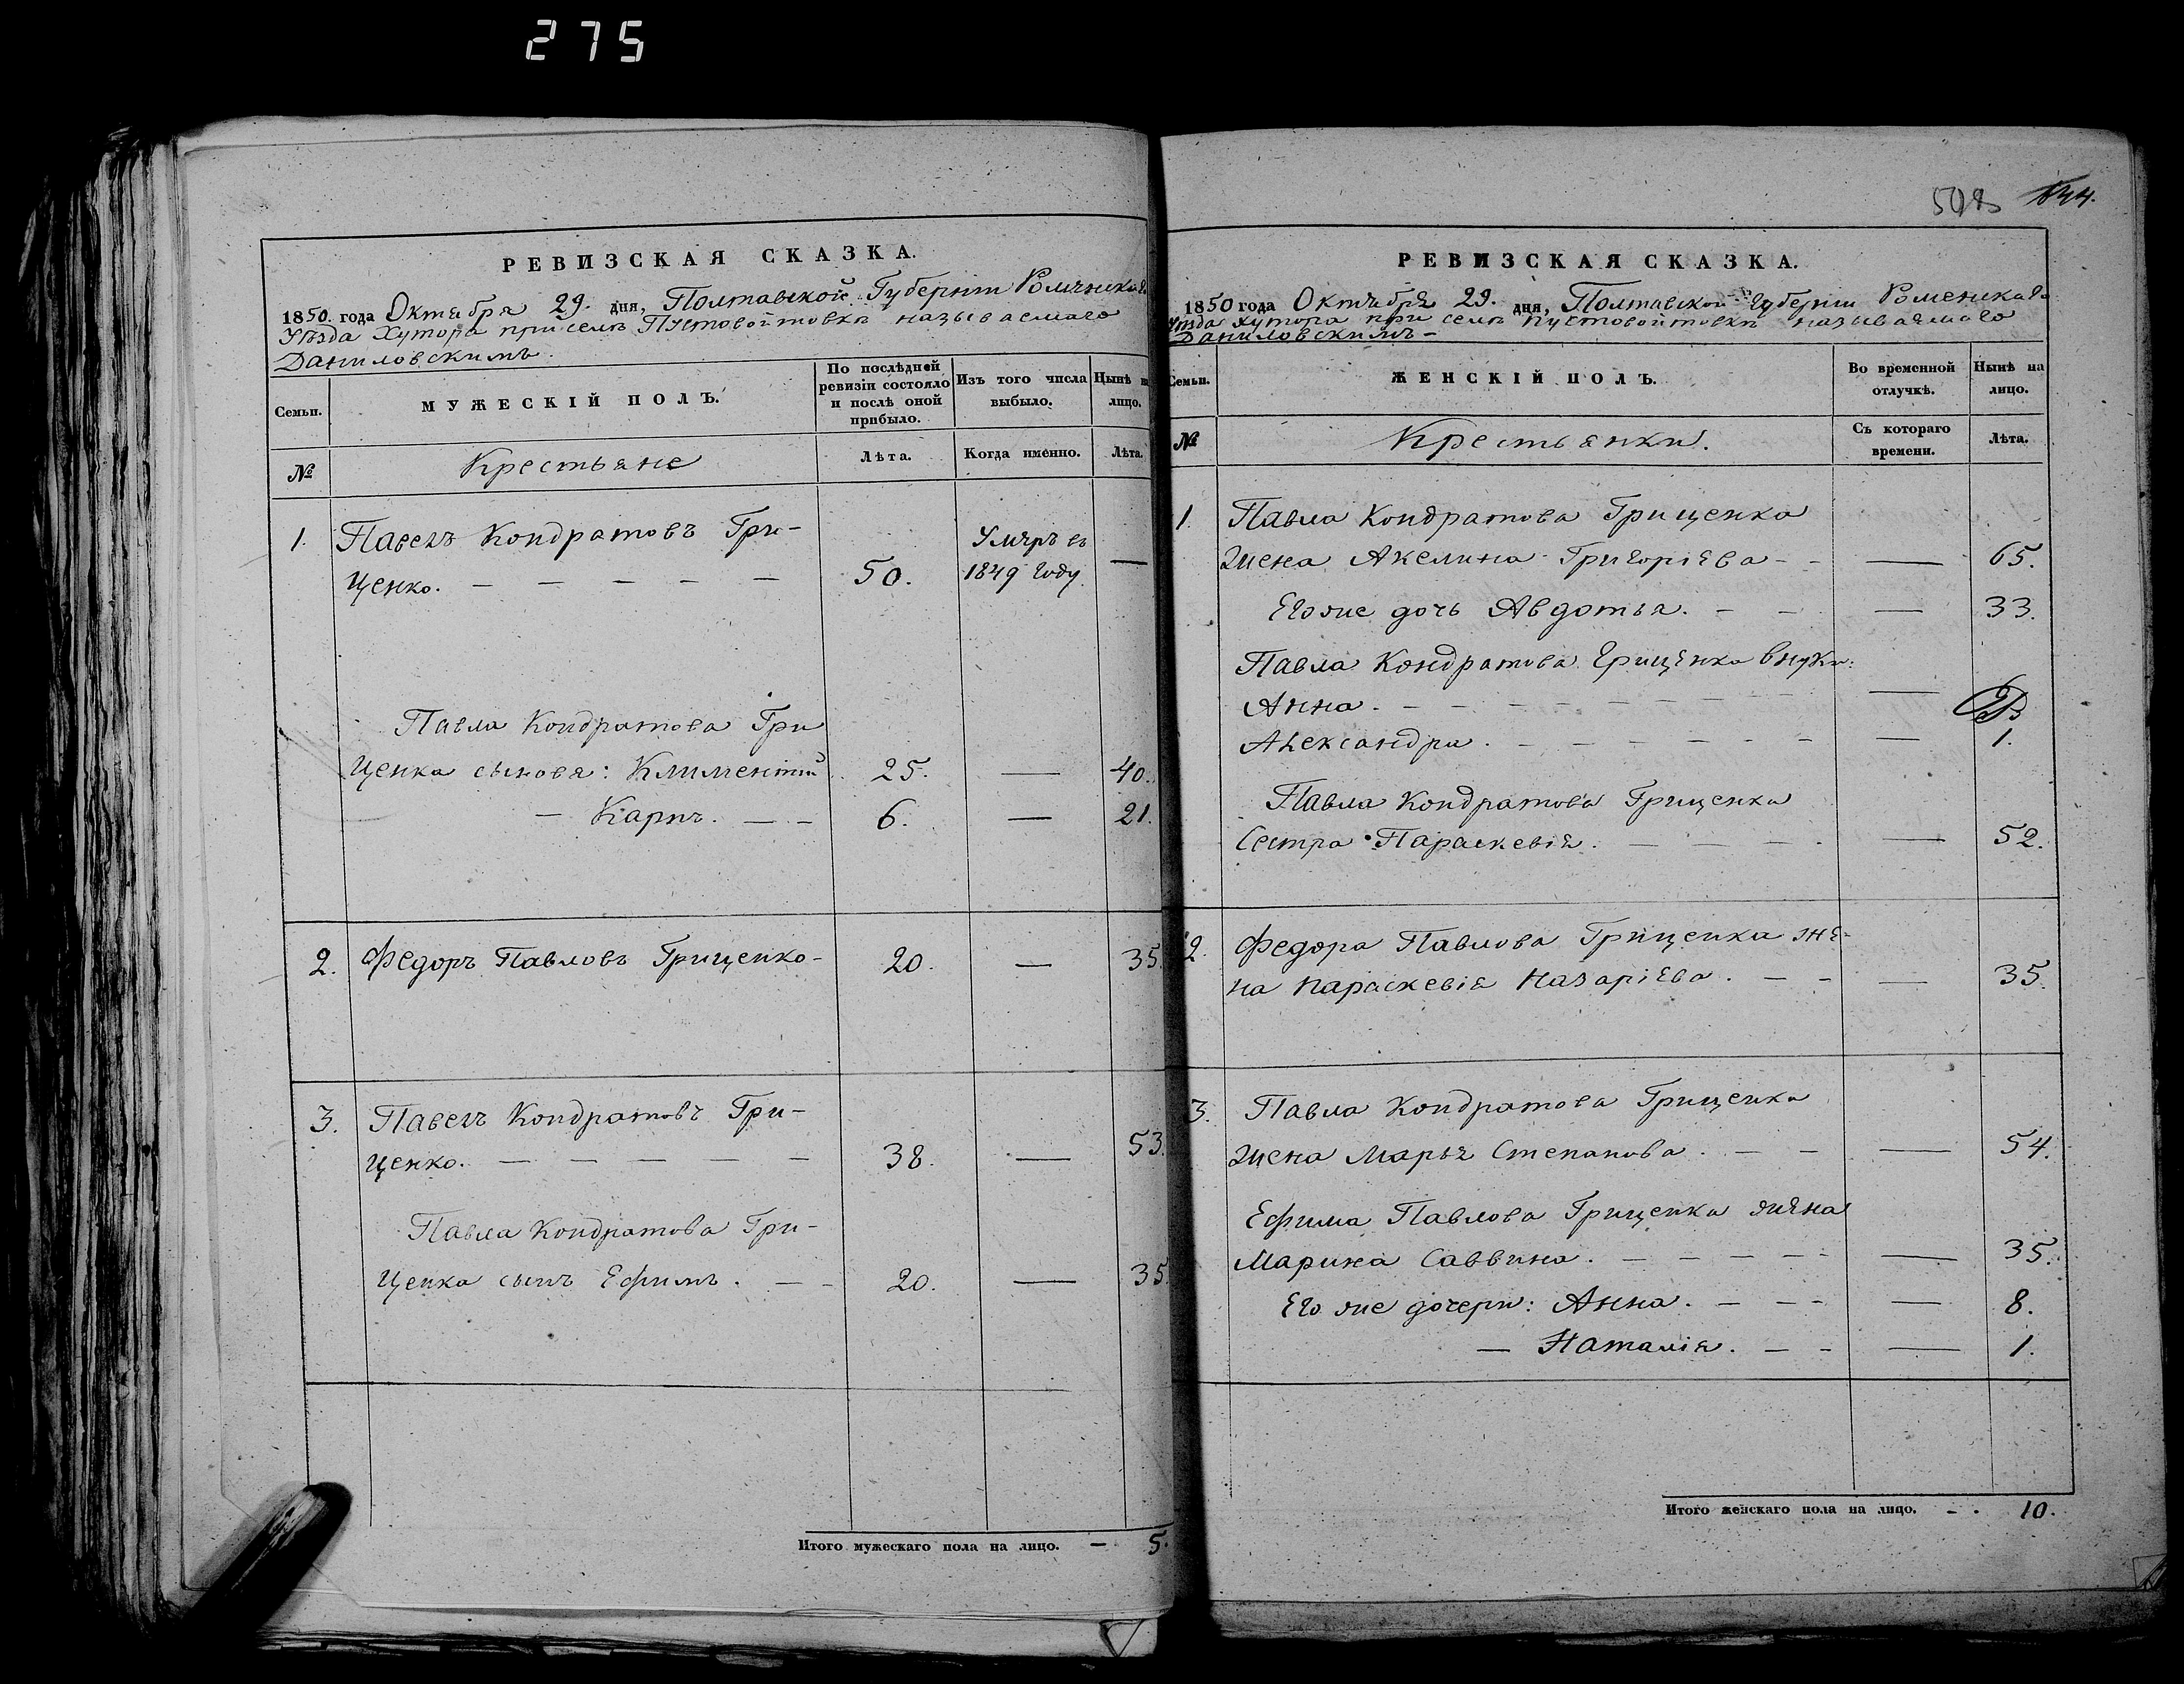 275
РЕВИЗСКАЯ СКАЗКА.
1850. года Октября 29. дня, Полтавской Губерніи Роменскаго
Уѣзда Хутора при селѣ Пустовойтовкѣ называемаго
Даниловскимъ.
Семьи.
МУЖЕСКІЙ ПОЛЪ.
По послѣдней
ревизіи состояло
и послѣ оной
прибыло.
Изъ того числа
выбыло.
Нынѣ на
лицо.
№
Крестьяне
Лѣта.
Когда именно.
Лѣта.
1. Павелъ Кондратовъ Гри-
ценко. — — — — — 50. Умеръ въ 1849 году —
Павла Кондратова Гри
ценка сыновя: Климентій 25. — 40.
— Карпъ. — — 6. — 21.
2. Федоръ Павловъ Гриценко- 20. — 35.
3. Павелъ Кондратовъ Гри-
ценко. — — — — — 38. — 53
Павла Кондратова Гри-
ценка сынъ Ефимъ. — — 20. — 35.
Итого мужескаго пола на лицо. — 5.
508 144.
РЕВИЗСКАЯ СКАЗКА.
1850 года Октября 29. дня, Полтавской Губерніи Роменскаго
Уѣзда хутора при селѣ Пустовойтовкѣ называемаго
Даниловскимъ —
Семьи.
ЖЕНСКІЙ ПОЛЪ.
Во временной
отлучкѣ.
Нынѣ на
лицо.
№
Крестьянки.
Съ котораго
времени.
Лѣта.
1. Павла Кондратова Гриценка
жена Акелина Григоріева - - — 65.
Его же дочь Авдотья. — - — 33.
Павла Кондратова Гриценка внуки:
Анна. — — — — — — —
Александра. — — — — — — — 1.
Павла Кондратова Гриценка
Сестра Параскевія. — — — - — 52.
2. Федора Павлова Гриценка же-
на Параскевія Назаріева. — - — 35.
3. Павла Кондратова Гриценка
жена Марья Степанова. — - — 54.
Ефима Павлова Гриценка жена
Марина Саввина. — — — — - — 35.
Его же дочери: Анна. — - - — 8.
— Наталія. — - — 1.
Итого женскаго пола на лицо. - - 10.